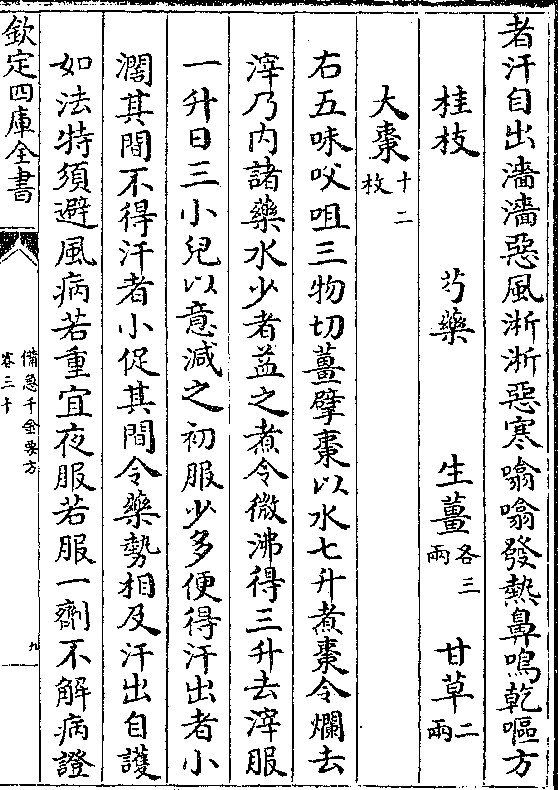 者汗自出濇濇惡風淅淅惡寒噏噏發熱鼻鳴乾嘔方
桂枝　芍藥　生薑各三兩　甘草二兩
大棗十二枚
右五味㕮咀三物切薑擘棗以水七升煮棗令爛去
滓乃内諸藥水少者益之煮令微沸得三升去滓服
一升日三小兒以意減之初服少多便得汗出者小
濶其間不得汗者小促其間令藥勢相及汗出自護
如法特須避風病若重宜夜服若服一劑不解病證
欽定四庫全書
備急千金要方
卷三十
九